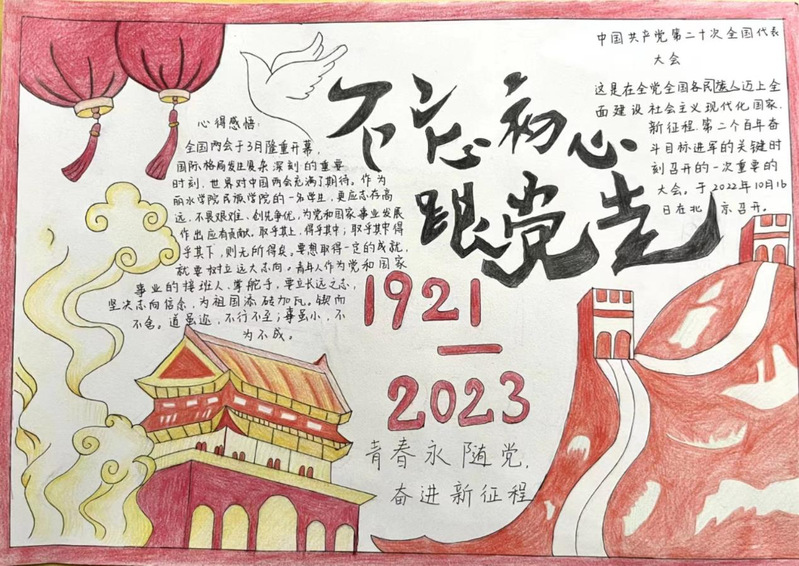 不忘初心
跟党走
中国共产党第二十次全国代表
大会
这是在全党全国各民族人迈上全
面建设社会主义现代化国家,
新征程,第二个百年奋
斗目标进军的关键时
刻召开的一次重要的
大会。于2022年10月16
日在北京召开。
心得感悟:
全国两会于3月隆重开幕,
国际格局发生复杂深刻的重要
时刻,世界对中国两会充满了期待。作为
丽水学院民族学院的一名学生,更应志存高
远,不畏艰难,创先争优,为党和国家事业发展
作出应有贡献。取乎其上,得乎其中;取乎其中得
乎其下,则无所得矣。要想取得一定的成就,
就要树立远大志向。青年人作为党和国家
事业的接班人,掌舵手,要立长远之志,
坚决志向信念,为祖国添砖加瓦。锲而
不舍。道虽迩,不行不至;事虽小,不
为不成。
1921
—
2023
青春永随党,
奋进新征程